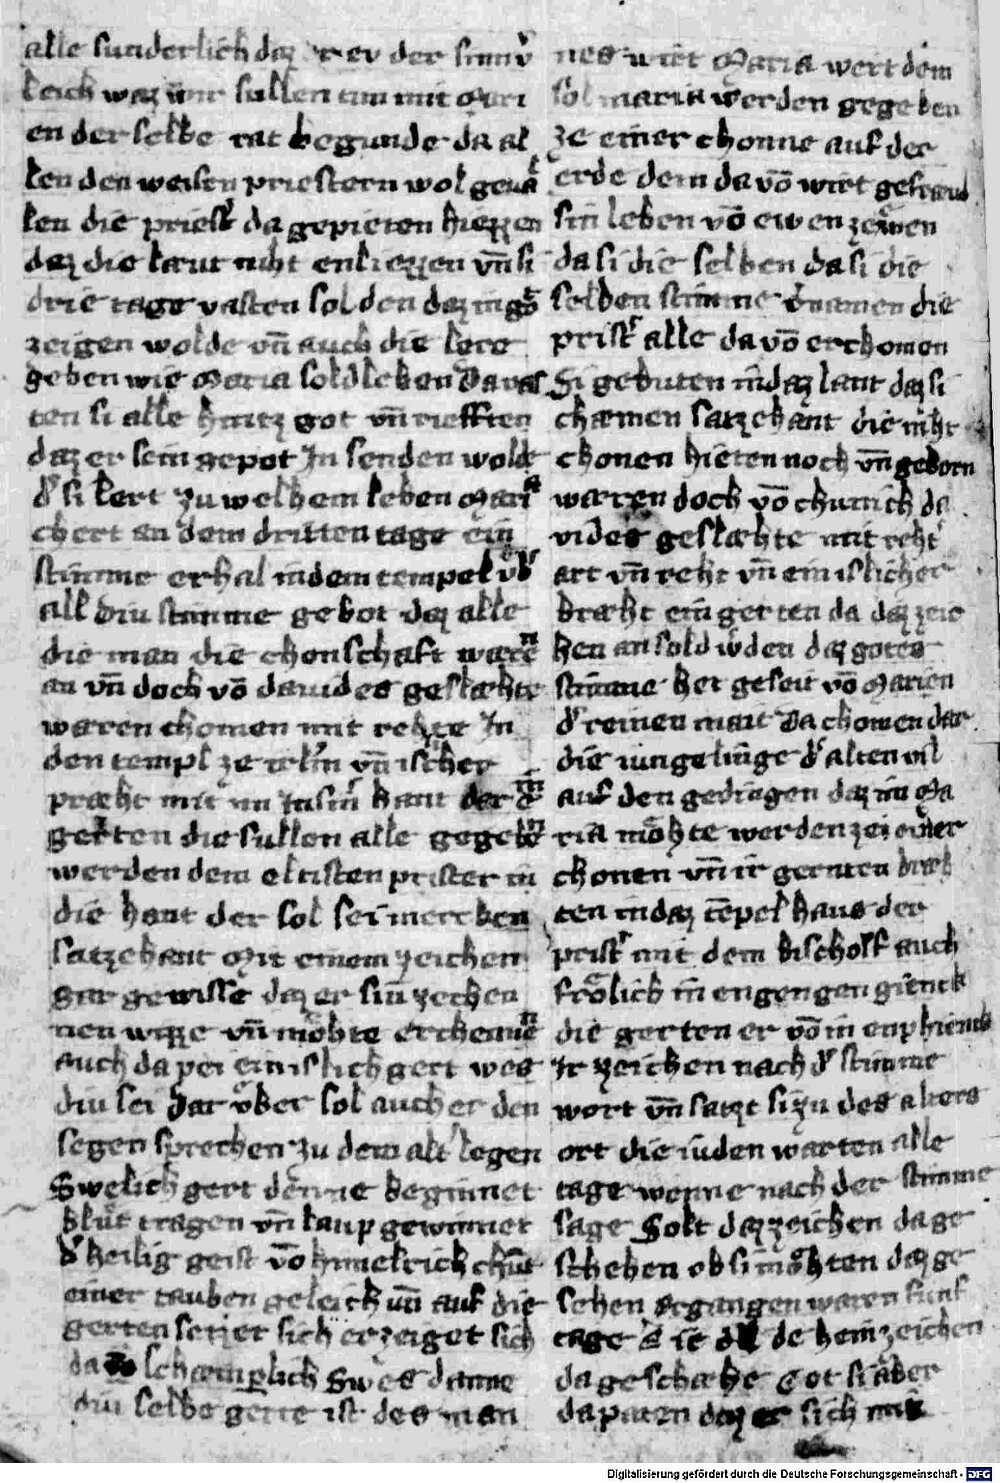 alle sunderlich daz er ev der sinnv̄
leich waz wir sullen tun mit Mari
en der selbe rat begunde da al
len den weisen priestern wol geuaͤ
len die priesť da gepieten hiezzen
daz die laeut niht enliezzen vn̄ si
drie tage vasten solden daz in goͭ
zeigen wolde vn̄ auch die lere
geben wie Maria sold leben Da vas
ten si alle hintz got vn̄ riefften
daz er sein gepot In senden wolde
d' si lert zu welhem leben Mariͣ
chert an dem dritten tage ein
stimme erhal in dem tempel vb'
all diu stimme gebot daz alle
die man die chonschaft waereͫ
an vn̄ doch vō dauides geslaehte
waren chomen mit rehte In
den templ ze irl'm vn̄ islicher
praeht mit im In sin' hant der
gerten die sullen alle gegebeͫ
werden dem eltisten prister in
die hant der sol sei merchen
satzehant Mit einem zeichen
gar gewisse daz er sin zechen
nen wizze vn̄ moͤhte erchenneͫ
auch da pei ein islich gert wes
diu sei Dar vͤber sol auch er den
segen sprechen zu dem alť legen
Swelich gert denne beginnet
bluͤt tragen vn̄ laup gewinnet
d' heilig geist vō himelrich chuͤt
einer tauben geleich vn̄ auf die
gerten setzet sich erzeiget sich
da vō schaemplich Swes danne
diu selbe gerte ist des man
nes wirt Maria wert dem
sol maria werden gegeben
ze einer chonne auf der
erde dem da vō wirt gefraeud
sin leben vō ewen zewen
da si die selben da si die
selben stimme v'namen die
prisť alle da vō erchomen
Si gebuten in daz lant daz si
chaemen satzehant die niht
chonen hieten noch vn̄ geborn
waeren doch vō chunich da
vides geslaehte mit reht'
art vn̄ reht vn̄ ein islicher
braeht ein gerten da daz zeic
hen an sold w'den daz gotes
stimme het geseit vō Marien
d' reinen mait Da chomen dar
die iungelinge d' alten vil
auf den gedingen daz im Ma
ria moͤhte werden ze einer
chonen vn̄ ir gernten braeh
ten in daz tēpel haus der
prisť mit dem bischolf auch
froͤlich in engengen giench
die gerten er vō in enphiench
Ir zeichen nach d' stimme
wort vn̄ satzt si zu des alters
ort die iuden warten alle
tage wenne nach der stimme
sage Solt daz zeichen da ge
schehen ob si moͤhten daz ge
sehen ergangen waren funf
tage e ie de hein zeichen
da geschaehe Got si aber
da paten daz er sich
Digitalisierung gefördert durch die Deutsche Forschungsgemeinschaft - DFG